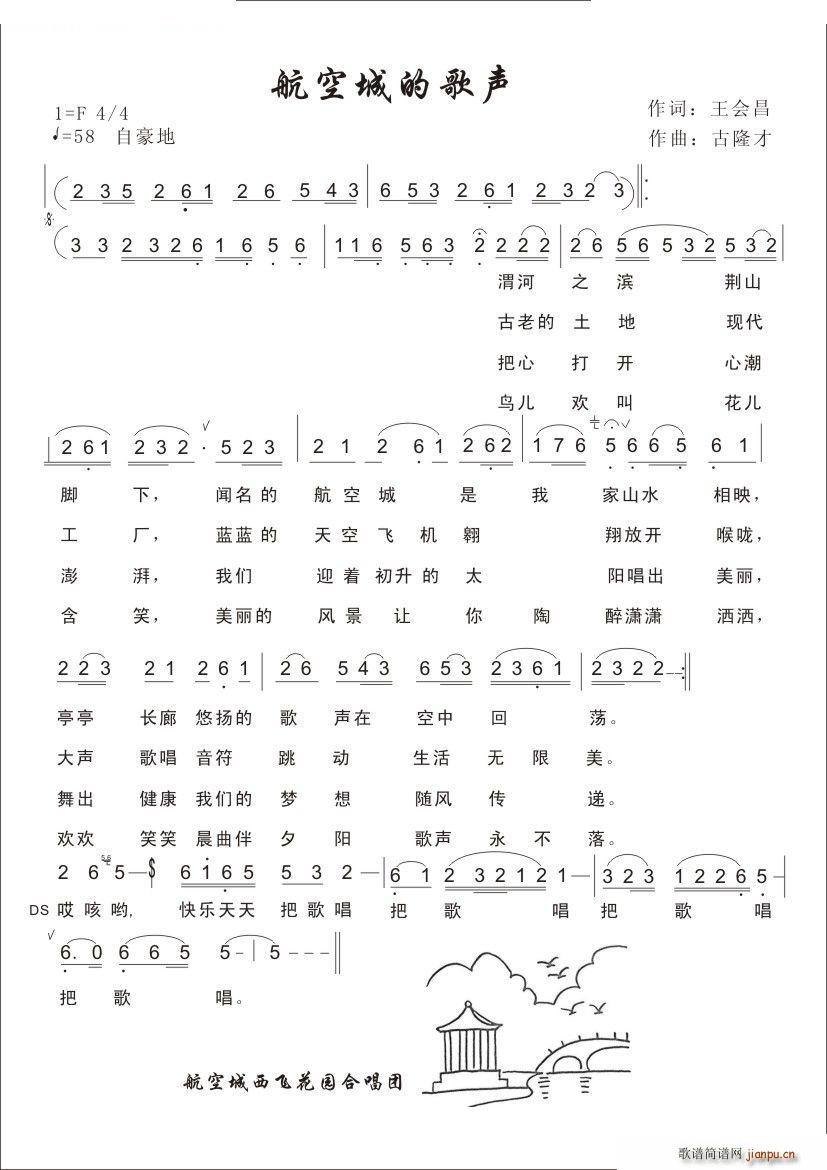 航空城的歌声
1=F 4/4
♩=58 自豪地
作词：王会昌
作曲：古隆才
( 2 3 5 2 6 1 2 6 5 4 3 | 6 5 3 2 6 1 2 3 2 3 ) :
3 3 2 3 2 6 1 6 5 6 | 1 1 6 5 6 3 2 2 2 2 | 2 6 5 6 5 3 2 5 3 2 |
渭河 之 滨 荆山
古老的 土 地 现代
把心 打 开 心潮
鸟儿 欢 叫 花儿
2 6 1 2 3 2 · 5 2 3 | 2 1 2 6 1 2 6 2 | 1 7 6 5 6 6 5 6 1 |
脚 下， 闻名的 航空城 是 我 家山水 相映，
工 厂， 蓝蓝的 天空飞机翱 翔放开 喉咙，
澎 湃， 我们 迎着初升的太 阳唱出 美丽，
含 笑， 美丽的 风景让 你 陶 醉潇潇 洒洒，
2 2 3 2 1 2 6 1 | 2 6 5 4 3 6 5 3 2 3 6 1 | 2 3 2 2 -- :
亭亭 长廊 悠扬的 歌 声在 空中 回 荡。
大声 歌唱 音符 跳 动 生活 无 限 美。
舞出 健康 我们的 梦 想 随风 传 递。
欢欢 笑笑 晨曲伴 夕 阳 歌声 永 不 落。
2 6 5 — 6 1 6 5 5 3 2 — | 6 1 2 3 2 1 2 1 — | 3 2 3 1 2 2 6 5 — |
DS 哎咳哟， 快乐天天 把歌唱 把 歌 唱 把 歌 唱
6. 0 6 6 5 5 - | 5 ---
把 歌 唱。
航空城西飞花园合唱团
歌谱简谱网 jianpu.cn